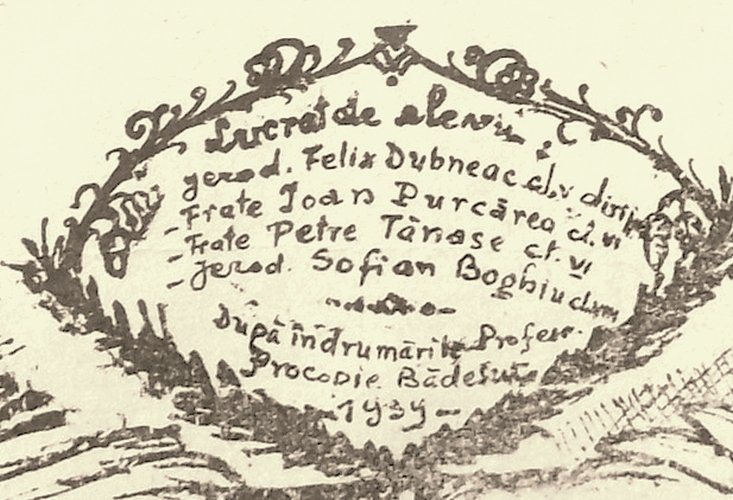 Lucrat de elevii:
Jerod. Felix Dubneac cl. V
- Frate Ioan Purcărea cl. VI
- Frate Petre Tănase cl. VI
- Jerod. Sofian Boghiu
După îndrumările Profesor.
Procopie Bădeluț
- 1939 -